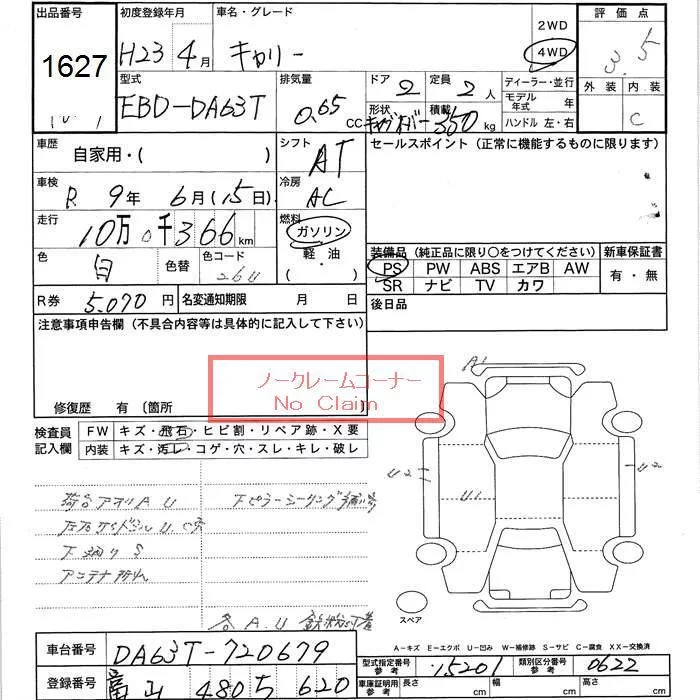 出品番号 初度登録年月 車名・グレード 2WD 評価点
1627 H23 4月 キャリー 4WD 3.5
型式 排気量 ドア 2 定員 2人 ディーラー・並行 外装 内装
EBD-DA63T 0.65 CC 形状 積載 350 kg モデル年式 年 C
ハンドル 左・右
車歴 自家用・( ) シフト AT セールスポイント (正常に機能するものに限ります)
車検 R 9年 6月(15日) 冷房 AC
走行 10万0千366km 燃料 ガソリン
軽・油 装備品(純正品に限り〇をつけてください) 新車保証書
色 白 色替 色コード 26U ( ) PS PW ABS エアB AW 有・無
SR ナビ TV カワ
R券 5,070円 名変通知期限 月 日 後日品
注意事項申告欄 (不具合内容等は具体的に記入して下さい)
ノークレームコーナー
No Claim
修復歴 有 〔箇所 〕
A1
検査員記入欄 FW キズ・飛石・ヒビ割・リペア跡・X要
内装 キズ・汚レ・コゲ・穴・スレ・キレ・破レ
U2 U1 U2
荷台アオリA.U
下廻りS
アンテナ
各A.U
スペア
A-キズ E-エクボ U-凹み W-補修跡 S-サビ C-腐食 XX-交換済
車台番号 DA63T-720679 型式指定番号 参考 15201 類別区分番号 参考 0622
登録番号 富山 480 ち 620 車庫証明用 参考 長さ cm 幅 cm 高さ cm